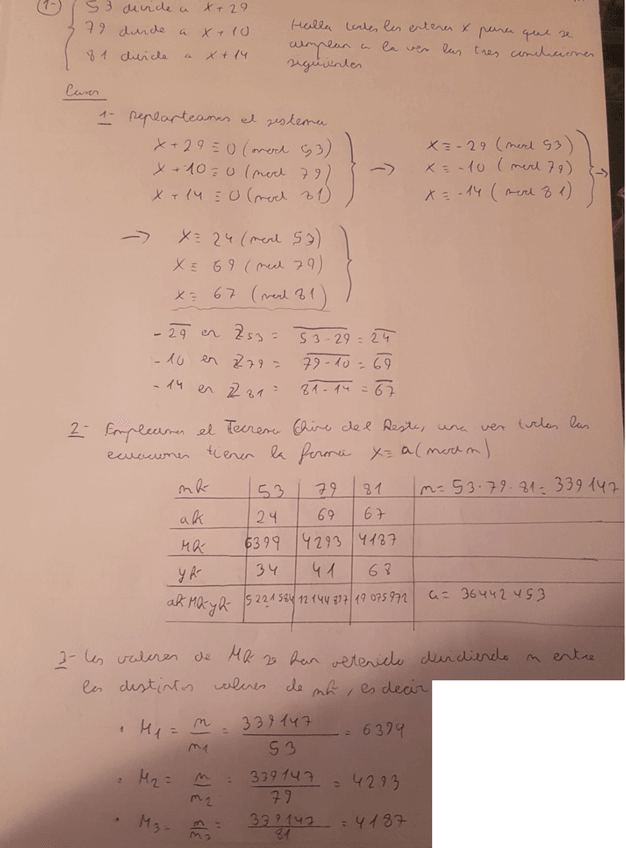 1- 53 divide a x + 29
79 divide a x + 10
81 divide a x + 14
Halla todos los enteros x para que se
cumplan a la vez las tres condiciones
siguientes
1- Replanteamos el sistema
x + 29 ≡ 0 (mod 53)
x + 10 ≡ 0 (mod 79)
x + 14 ≡ 0 (mod 81)
→ x ≡ -29 (mod 53)
x ≡ -10 (mod 79)
x ≡ -14 (mod 81) →
→ x ≡ 24 (mod 53)
x ≡ 69 (mod 79)
x ≡ 67 (mod 81)
-29 en Z53 = 53-29 = 24
-10 en Z79 = 79-10 = 69
-14 en Z81 = 81-14 = 67
2- Empleamos el Teorema Chino del Resto, una vez todas las
ecuaciones tienen la forma x ≡ a (mod m)
mk 53 79 81 m = 53·79·81 = 339147
ak 24 69 67
Mk 6399 4293 4187
yk 34 41 68
ak Mk yk 5221584 12144897 19075972 a = 36442453
3- Los valores de Mk se han obtenido dividiendo m entre
los distintos valores de mk, es decir
• M1 = m/m1 = 339147/53 = 6399
• M2 = m/m2 = 339147/79 = 4293
• M3 = m/m3 = 339147/81 = 4187